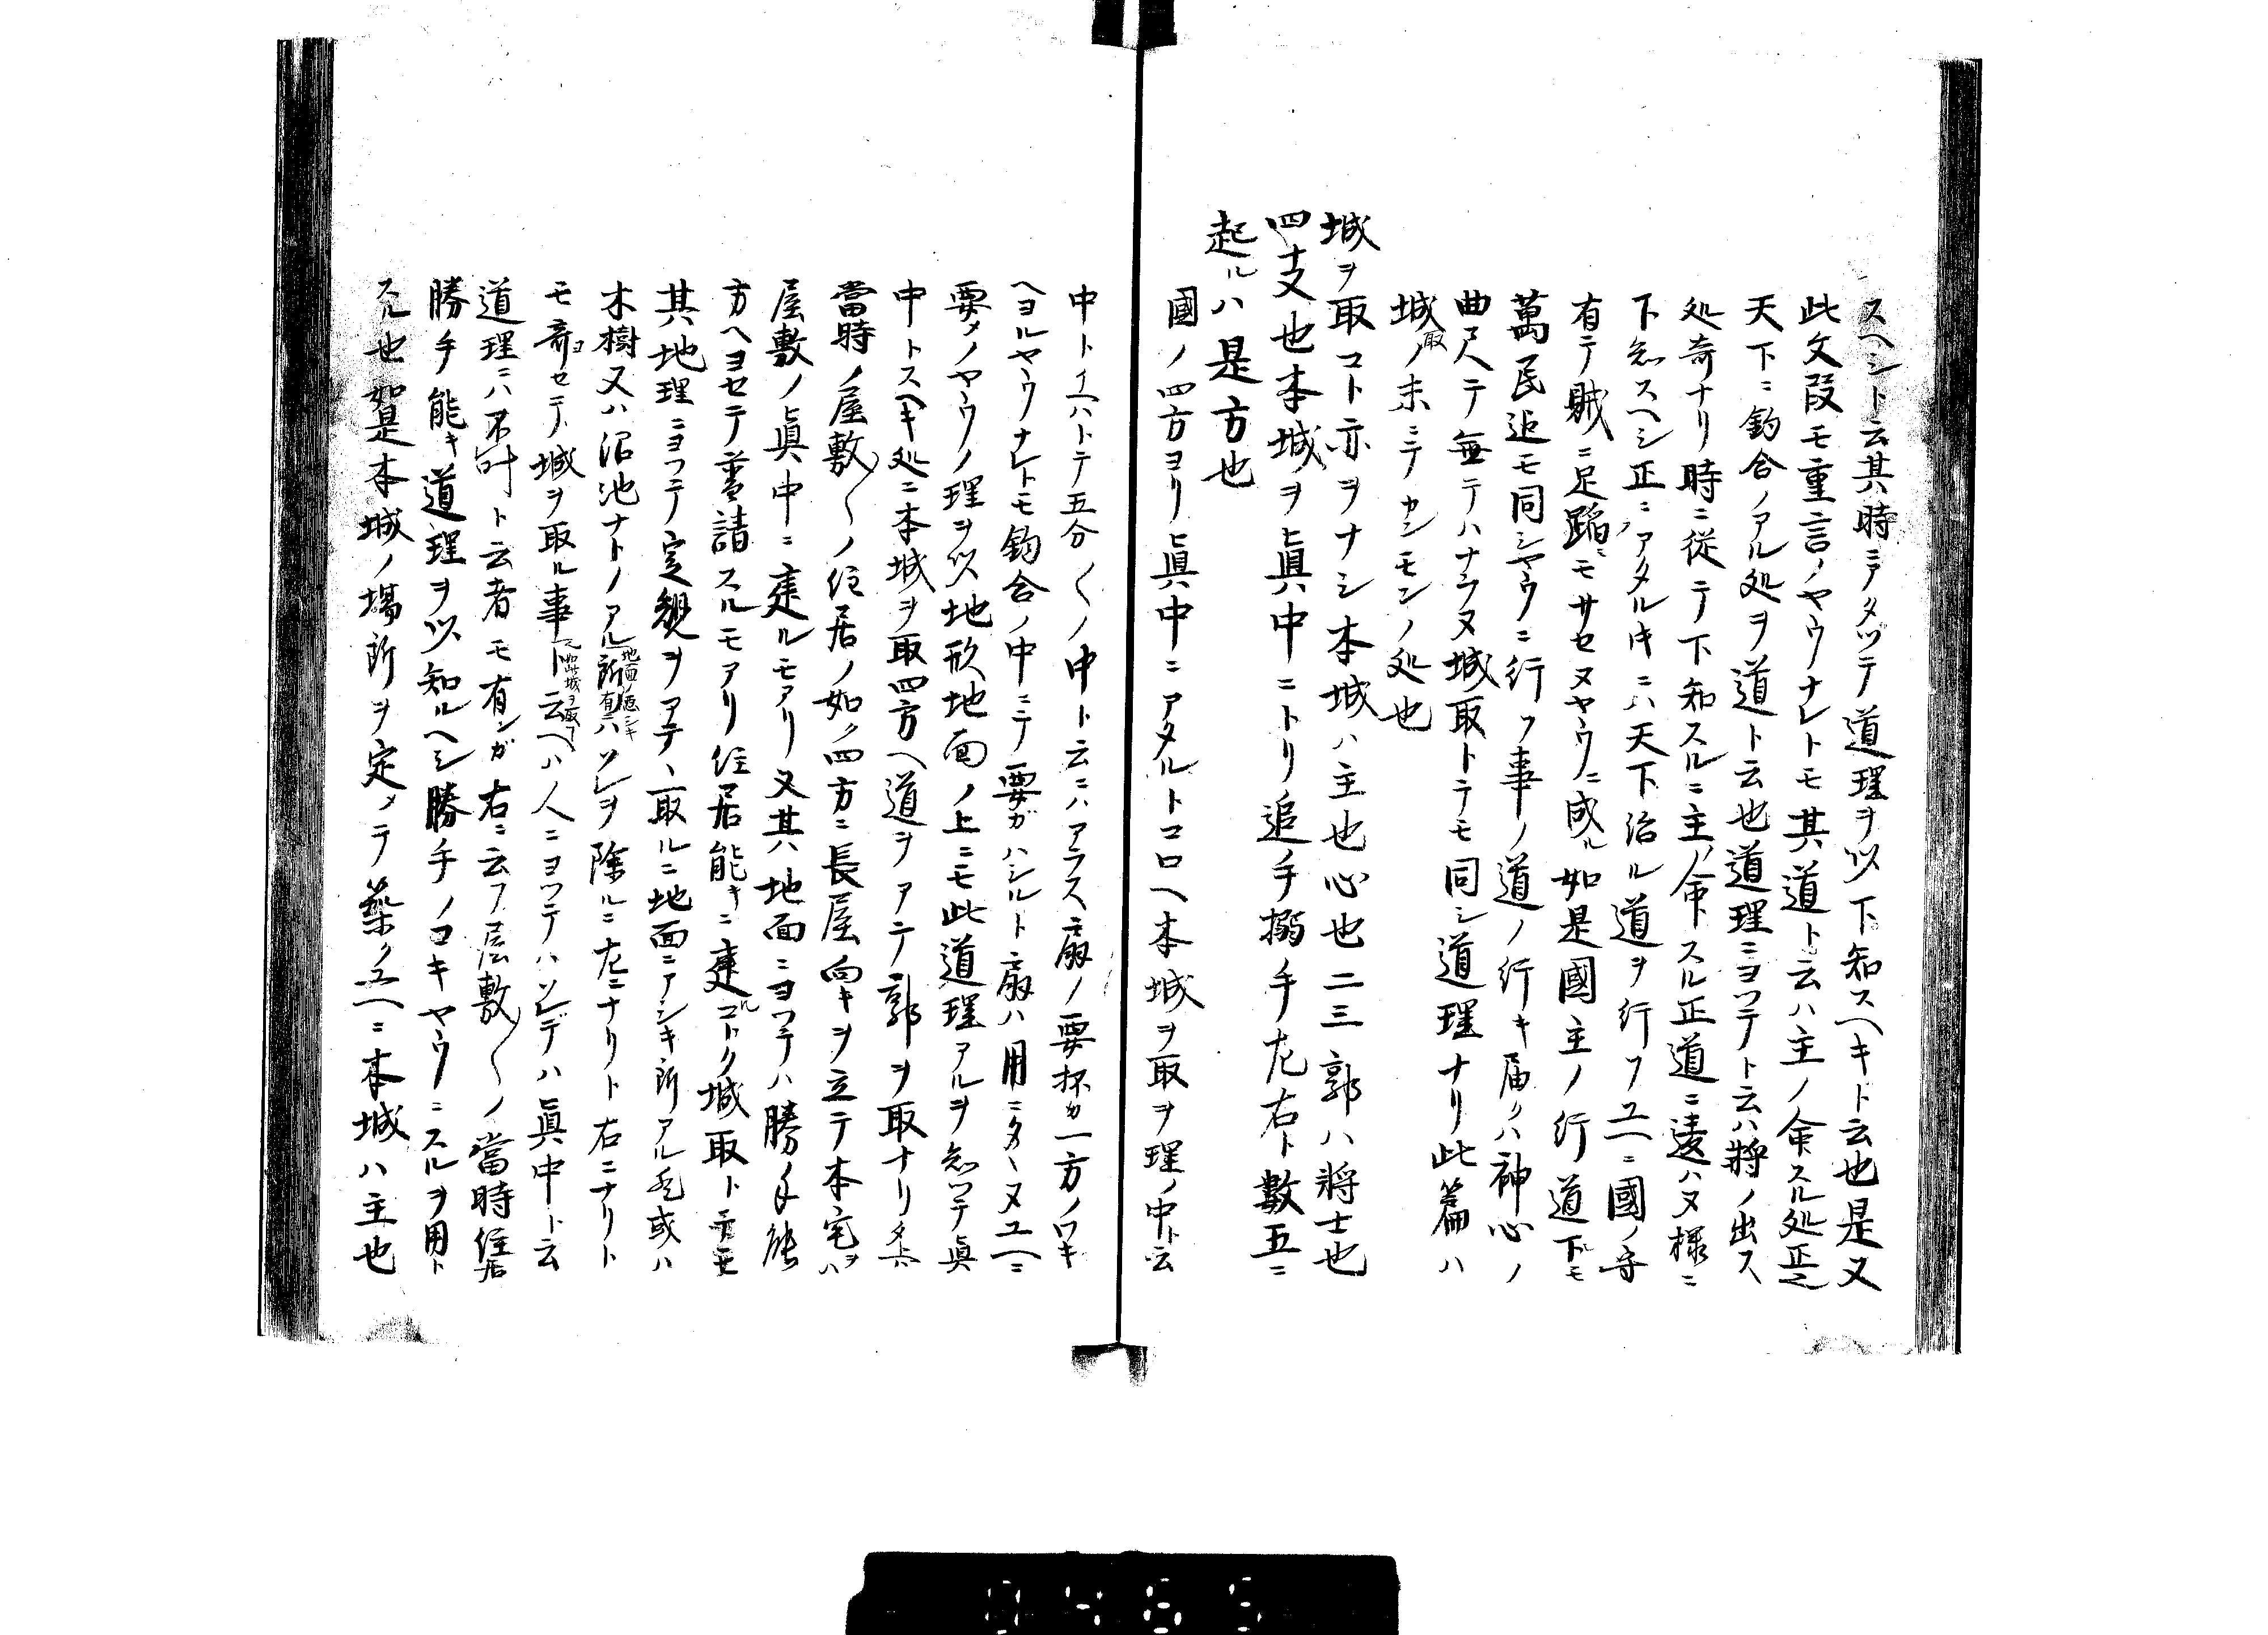 スヘシト云其時ニアタツテ道理ヲ以下知スヘキト云也是又
此文段モ重言ノヤウナレトモ其道ト云ハ主ノ命スル処正之
天下ニ鈞合ノアル処ヲ道ト云也道理ニヨツテト云ハ将ノ出ス
処奇ナリ時ニ従テ下知スルニ主ノ命スル正道ニ違ハヌ様ニ
下知スヘシ正ニアタルキニハ天下治ル道ヲ行フユヘニ國ノ守
有テ賊ニ足蹈ニモサセヌヤウニ成ル如是國主ノ行道下モ
萬民迠モ同シヤウニ行フ事ノ道ノ行キ届クハ神心ノ
曲尺テ無テハナラヌ城取トテモ同シ道理ナリ此篇ハ
城取ノ末ニテカンモンノ処也
城ヲ取コト亦ヲナシ本城ハ主也心也二三郭ハ将士也
四支也本城ヲ眞中ニトリ追手搦手左右ト數五ニ
起ルハ是方也
國ノ四方ヨリ眞中ニアタルトコロヘ本城ヲ取ヲ理ノ中ト云
中トイヘハトテ五分〱ノ中ト云ニハアラス扇ノ要抔カ一方ノワキ
ヘヨルヤウナレトモ鈞合ノ中ニテ要ガハシルト扇ハ用ニタヽヌユヘニ
要メノヤウノ理ヲ以地形地面ノ上ニモ此道理アルヲ知ツテ眞
中トスヘキ処ニ本城ヲ取四方ヘ道ヲアテ郭ヲ取ナリタトヘハ
當時ノ屋敷〱ノ住居ノ如ク四方ニ長屋向キヲ立テ本宅ヲハ
屋敷ノ眞中ニ建ルモアリ又其地面ニヨツテハ勝手能
方ヘヨセテ普請スルモアリ住居能キニ建ルコトク城取ト云モ
其地理ニヨツテ定規ヲアテヽ取ルニ地面ニアシキ所アル或ハ
木樹又ハ沼池ナトノアル所地面ノ悪シキ有ハソレヲ除ルニ左ニナリト右ニナリト
モ竒ヨセテ城ヲ取ル事ト云ヘハ人ニヨツテハソレデハ眞中ト云
道理ニハ不叶ト云者モ有ンガ右ニ云フ屋敷〱ノ當時住居
勝手能キ道理ヲ以知ルヘシ勝手ノヨキヤウニスルヲ用ト
スル也如是本城ノ場所ヲ定メテ築クユヘニ本城ハ主也